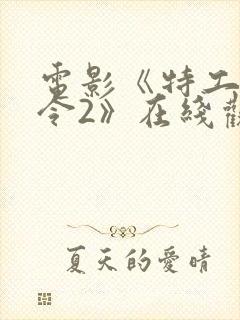 電影《特工
令2》在綫觀
夏天的愛晴